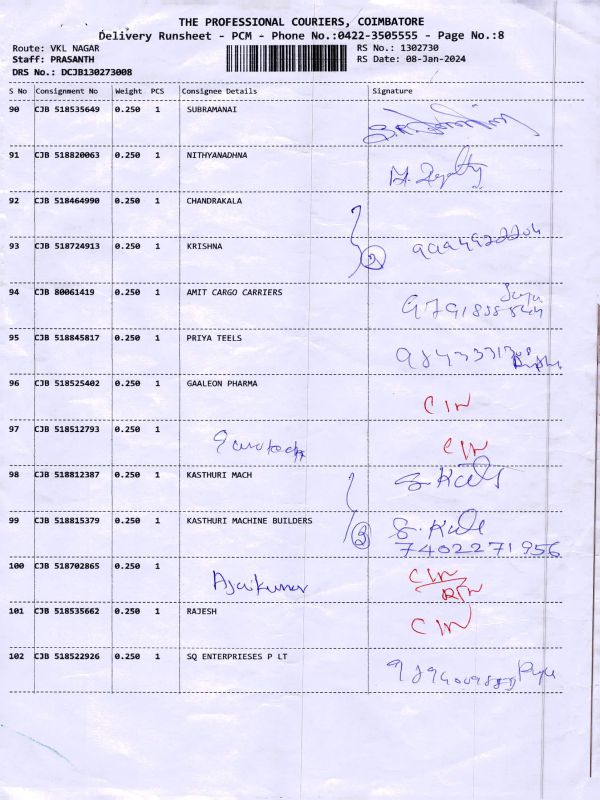 THE PROFESSIONAL COURIERS, COIMBATORE
Delivery Runsheet - PCM - Phone No.:0422-3505555 - Page No.:8
Route: VKL NAGAR
RS No.: 1302730
Staff: PRASANTH
RS Date: 08-Jan-2024
DRS No.: DCJB130273008
S No Consignment No Weight PCS Consignee Details Signature
90 CJB 518535649 0.250 1 SUBRAMANAI
91 CJB 518820063 0.250 1 NITHYANADHNA
92 CJB 518464990 0.250 1 CHANDRAKALA
93 CJB 518724913 0.250 1 KRISHNA
94 CJB 80061419 0.250 1 AMIT CARGO CARRIERS
95 CJB 518845817 0.250 1 PRIYA TEELS
96 CJB 518525402 0.250 1 GAALEON PHARMA CIN
97 CJB 518512793 0.250 1 CIN
98 CJB 518812387 0.250 1 KASTHURI MACH
99 CJB 518815379 0.250 1 KASTHURI MACHINE BUILDERS
7402271956
100 CJB 518702865 0.250 1 Ajaikumar CIN
101 CJB 518535662 0.250 1 RAJESH CIN
102 CJB 518522926 0.250 1 SQ ENTERPRIESES P LT